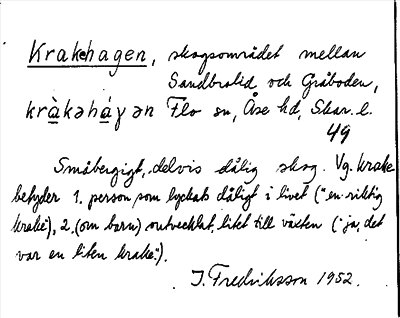 Krakehagen, skogsområdet mellan
Sandbrolid och Gråboden,
kràkəháγən Flo sn, Åse hd, Skar. l.
49
Småbergigt, delvis dålig skog. Vg. krake
betyder 1. person som lyckats dåligt i livet ("en riktig
krake"), 2. (om barn) outvecklat, litet till växten ("ja, det
var en liten krake").
I. Fredriksson 1952.